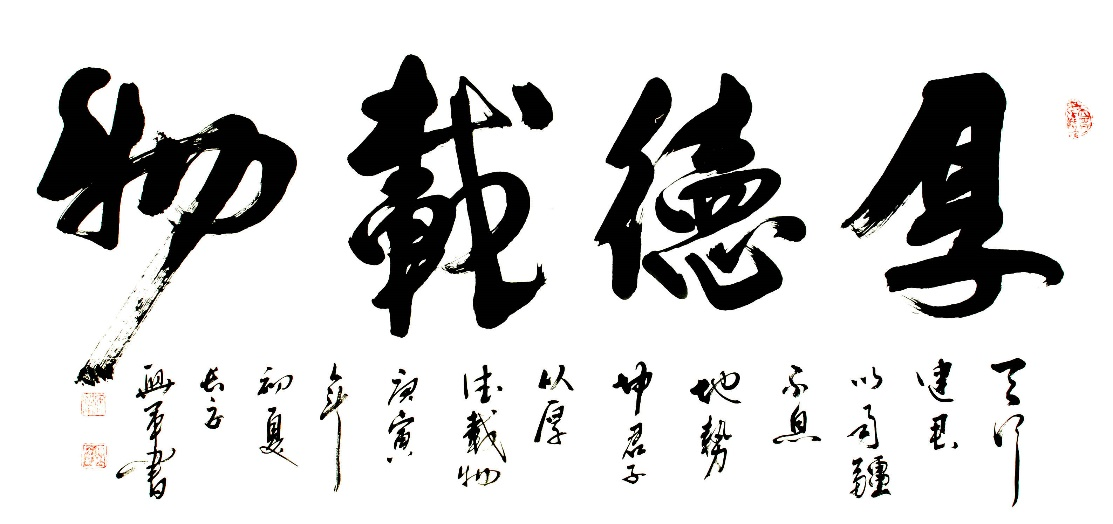 厚德載物
天行
健君
以自疆
不息
地勢
坤君子
以厚
德載物
庚寅
年
初夏
長安
書